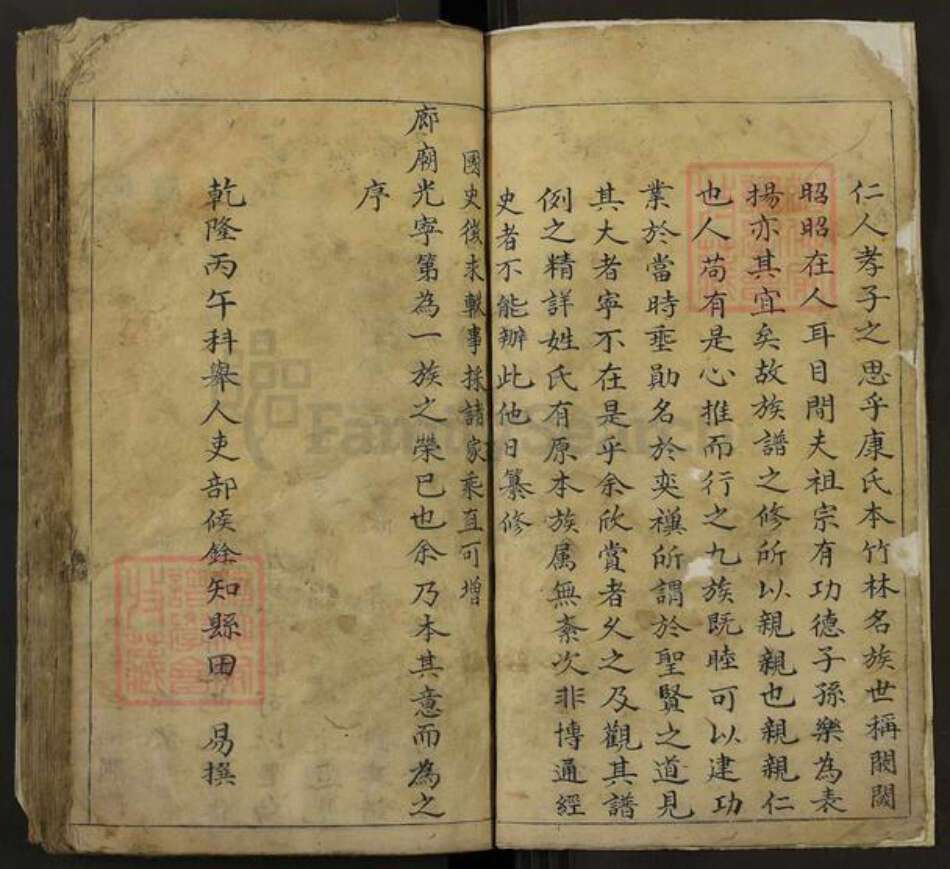 仁人孝子之思乎康氏本竹林名族世稱閥閱
昭昭在人耳目間夫祖宗有功德子孫樂為表
揚亦其宜矣故族譜之修所以親親也親親仁
也人苟有是心推而行之九族既睦可以建功
業於當時垂勛名於奕禩所謂於聖賢之道見
其大者寧不在是乎余欣賞者久之及觀其譜
例之精詳姓氏有原本族属無紊次非博通經
史者不能辦此他日纂修
國史徵求軼事採諸家乘直可增
廊廟光寧第為一族之榮已也余乃本其意而為之
序
乾隆丙午科舉人吏部候銓知縣田 易撰